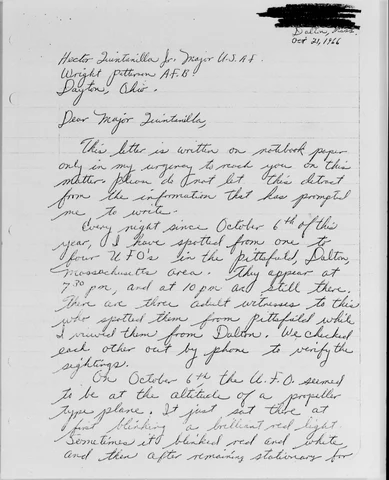 Dalton, Mass.
Oct 21, 1966
Hector Quintanilla Jr. Major U.S.A.F.
Wright Patterson A.F.B.
Dayton, Ohio.
Dear Major Quintanilla,
This letter is written on notebook paper
only in my urgency to reach you on this
matter. Please do not let this detract
from the information that has prompted
me to write.
Every night since October 6th of this
year, I have spotted from one to
four U.F.O's in the pittsfield, Dalton,
Massachusetts area. They appear at
7:30 pm, and at 10 pm are still there.
There are three adult witnesses to this
who spotted them from pittsfield while
I viewed them from Dalton. We checked
each other out by phone to verify the
sightings.
On October 6th the U.F.O. seemed
to be at the altitude of a propeller
type plane. It just sat there at
first blinking a brilliant red light.
Sometimes it blinked red and white,
and then after remaining stationary for